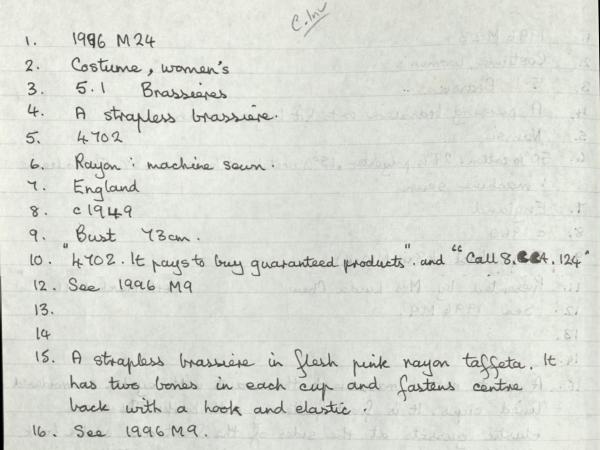 C. Inv
1. 1996 M24
2. Costume, women's
3. 5.1 Brassières
4. A strapless brassière.
5. 4702
6. Rayon : machine sewn.
7. England
8. c1949
9. Bust 73cm.
10. "4702. It pays to buy guaranteed products". and "Call 8. A. 124"
12. See 1996 M9
13.
14
15. A strapless brassière in flesh pink rayon taffeta. It
has two bones in each cup and fastens centre
back with a hook and elastic.
16. See 1996 M9.